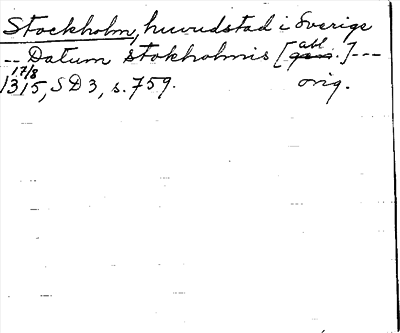 Stockholm, huvudstad i Sverige
abl.
-- Datum stokholmis [gen.] ---
17/8
1315, SD 3, s. 759. orig.